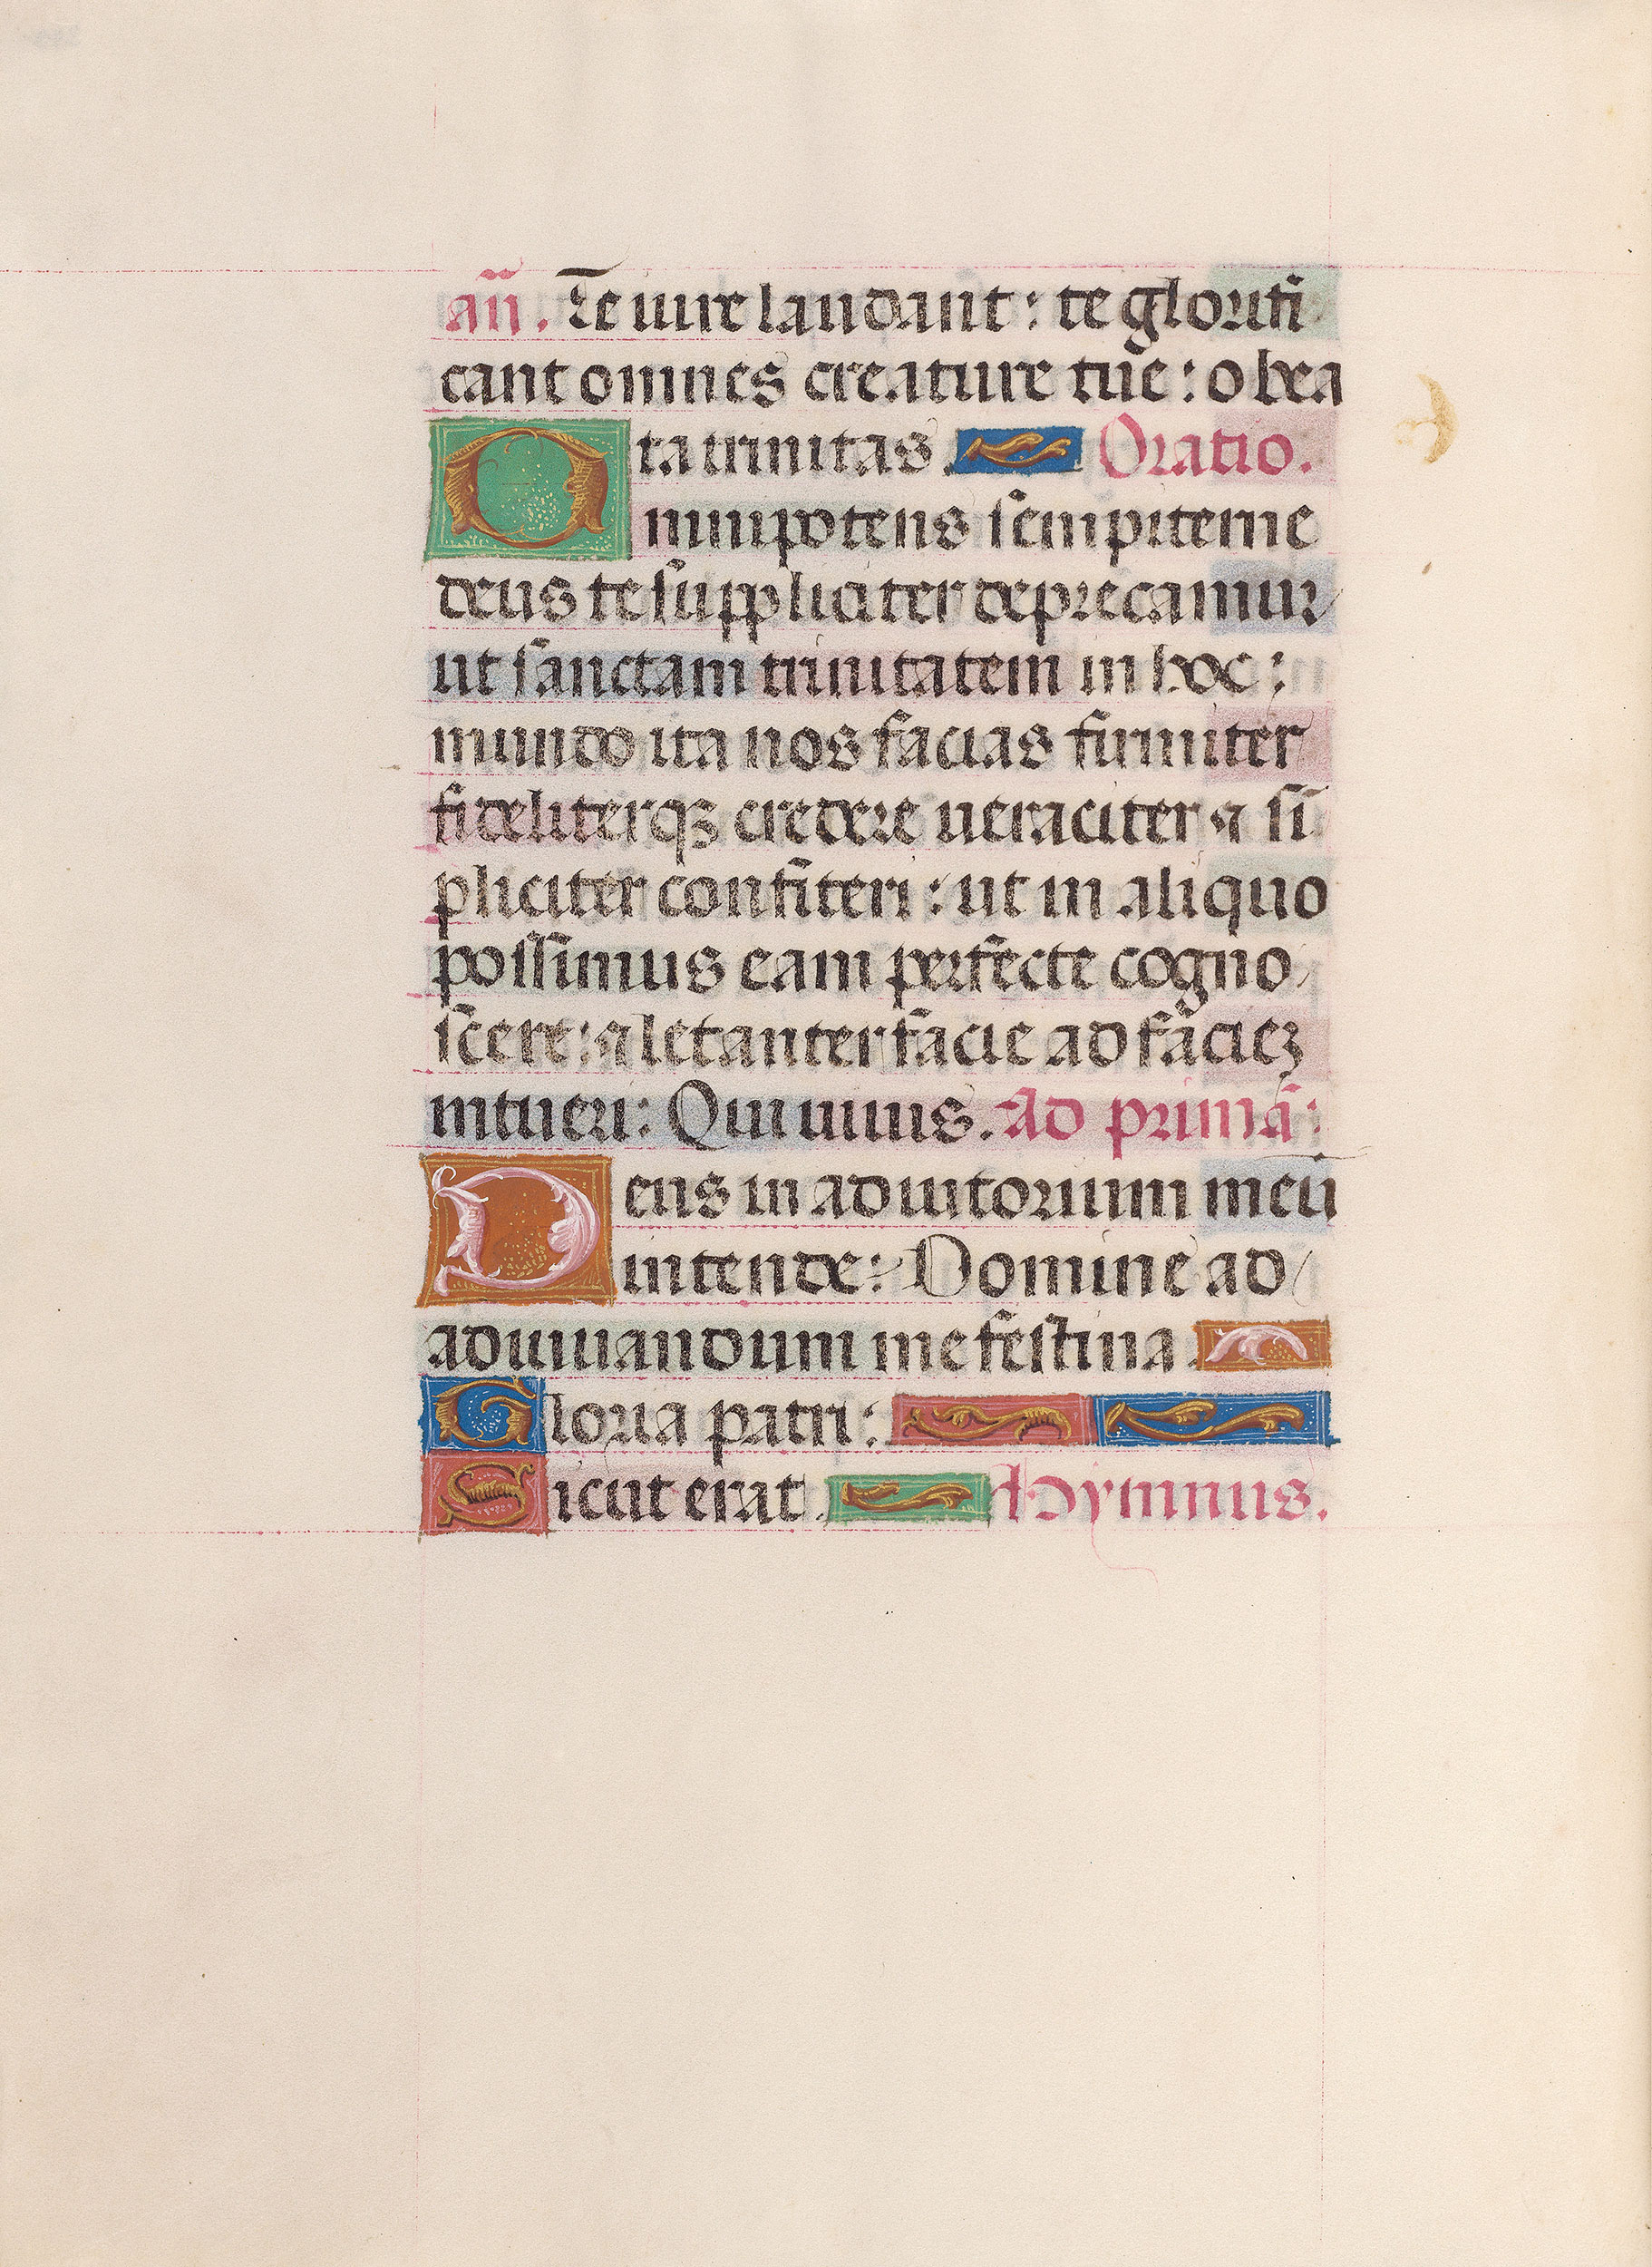 an̄. Te iure laudant: te glorifi
cant omnes creature tue: o bea
ta trinitas. Oratio.
Omnipotens sempiterne
deus te suppliciter deprecamur
ut sanctam trinitatem in hoc:
mundo ita nos facias firmiter
fideliterqꝫ credere ueraciter ⁊ sī
pliciter confiteri: ut in aliquo
possimus eam perfecte cogno
scere: ⁊ letanter facie ad facieꝫ
intueri: Qui uiuis. Ad primā:
Deus in adiutorium meū
intende: Domine ad
adiuuandum me festina.
Gloria patri:
Sicut erat. Hymnus.